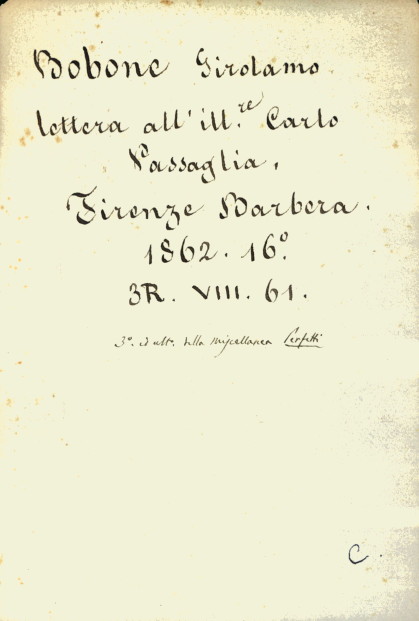 Bobone Girolamo
lettera all' ill.re Carlo
Passaglia.
Firenze Barbera.
1862. 16º.
3R. VIII. 61.
3º. ed ultº. della Miscellanea Perfetti
C.